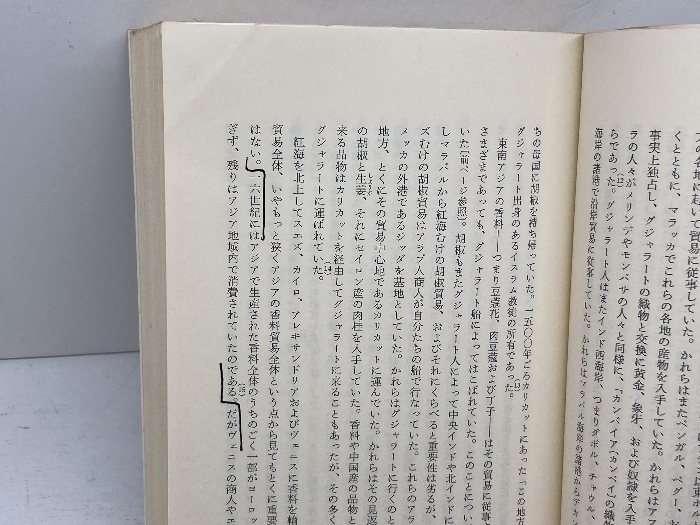 え各地に起いて貿易に従事していた。かれらはまたベンガル、ペグー、
くとともに、マラッカでこれらの各地の産物を入手していた。かれらは
事実上独占し、グジャラートの織物と交換に黄金、象牙、および奴隷を入手し
ラの人々がメリンデやモンバサの人々と同様に、「カンバイア(カンベイ)の織物
らであった。(12)グジャラート人はまたインド西海岸、つまりダボル、チャウル、
海岸の諸港で沿岸貿易に従事していた。かれらはマラバル海岸の諸港からアカン
ちの母国に胡椒を持ち帰っていた。一五〇〇年ごろカリカットにあった「この地方
グジャラート出身のあるイスラム教徒の所有であった。(13)
東南アジアの香料——つまり豆蔲花、肉豆蔲および丁子——はその貿易に従事
さまざまであっても、グジャラート船によってはこばれていた。このことについ
いた(前ページ参照)。胡椒もまたグジャラート人によって中央インドや北インドに
しマラバルから紅海むけの胡椒貿易、およびそれにくらべると重要性は劣るが、
ズむけの胡椒貿易はアラブ人商人が自分たちの船で行なっていた。これらのアラ
メッカの外港であるジッダを基地としていた。かれらはグジャラートに行くのと
地方、とくにその貿易中心地であるカリカットに運んでいた。かれらはその見返
の胡椒と生姜、それにセイロン産の肉桂を入手していた。香料や中国産の品物と
来る品物はカリカットを経由してグジャラートに来ることもあったが、その多く
グジャラートに運ばれていた。(14)
紅海を北上してスエズ、カイロ、アレキサンドリアおよびヴェニスに香料を輸
貿易全体、いやもっと狭くアジアの香料貿易全体という点から見てもとくに重要
はない。一六世紀にはアジアで生産された香料全体のうちのごく一部がヨーロッ
ぎず、残りはアジア地域内で消費されていたのである。(15)だがヴェニスの商人やエ